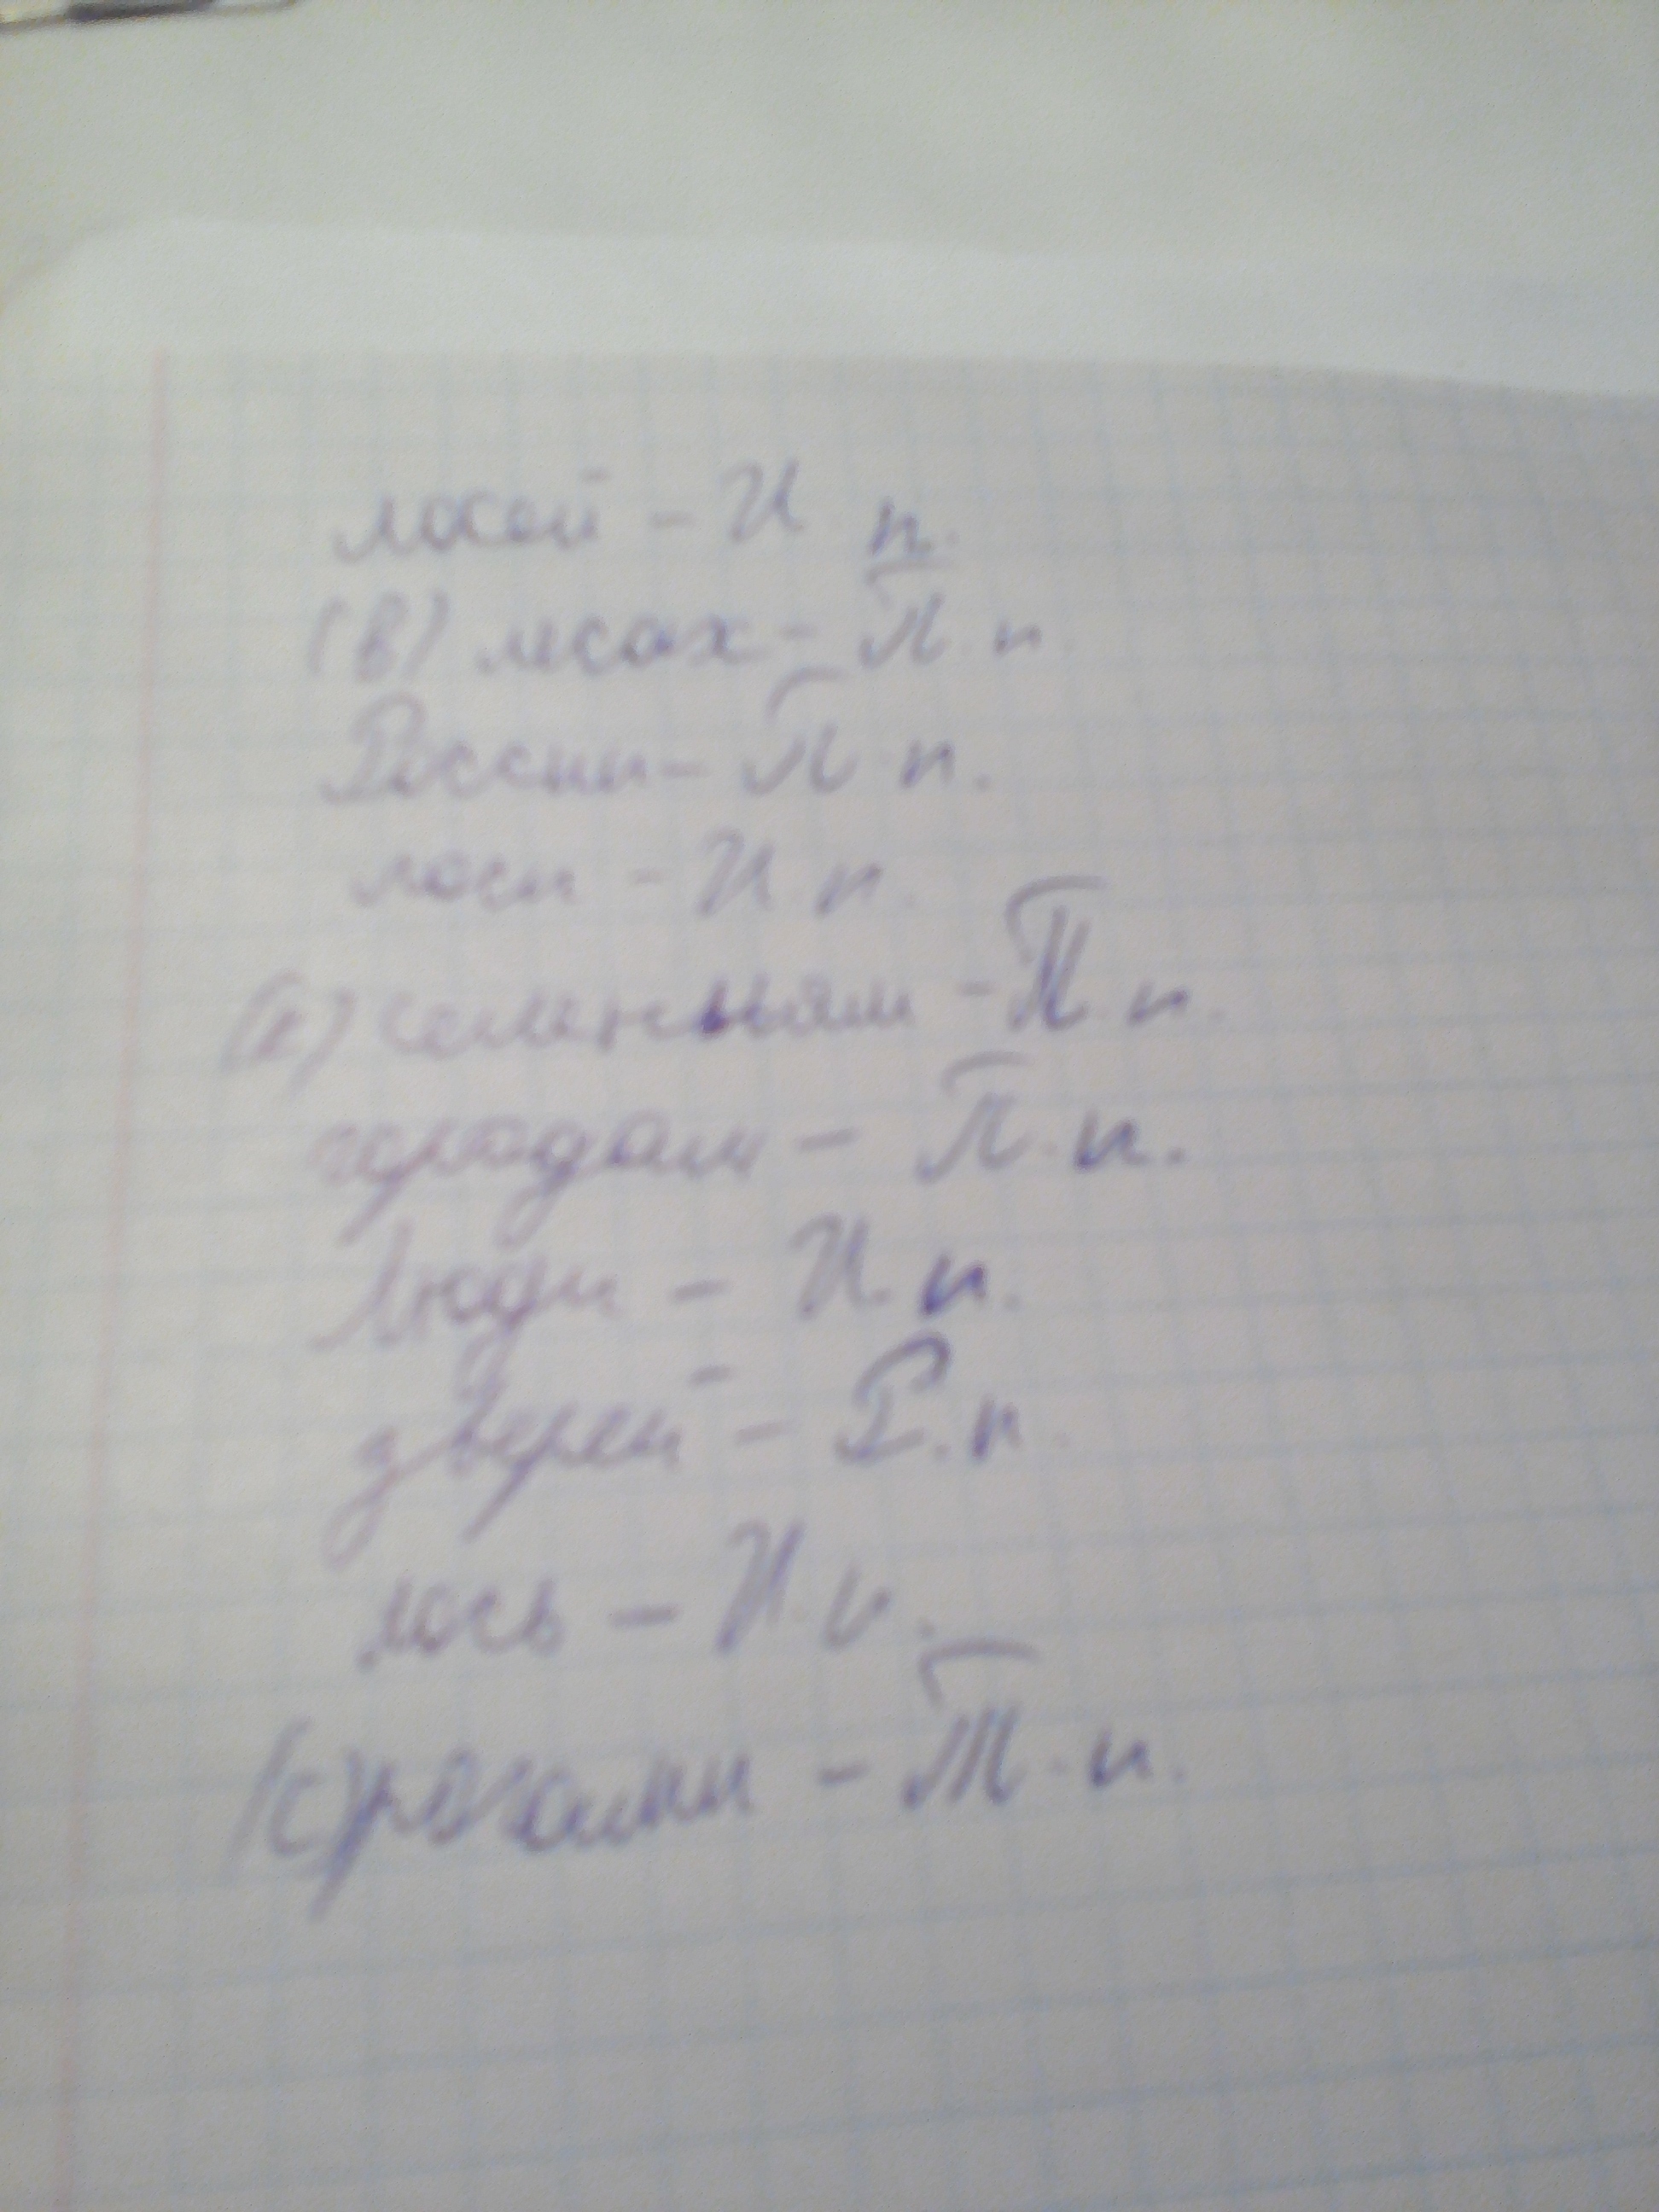 лосей - И п.
(в) лесах - П. п.
России - П. п.
лоси - И п.
(к) селеньям - П. п.
городам - П. п.
Люди - И. п.
зверей - Р. п.
лось - И. п.
(с) рогами - Т. п.